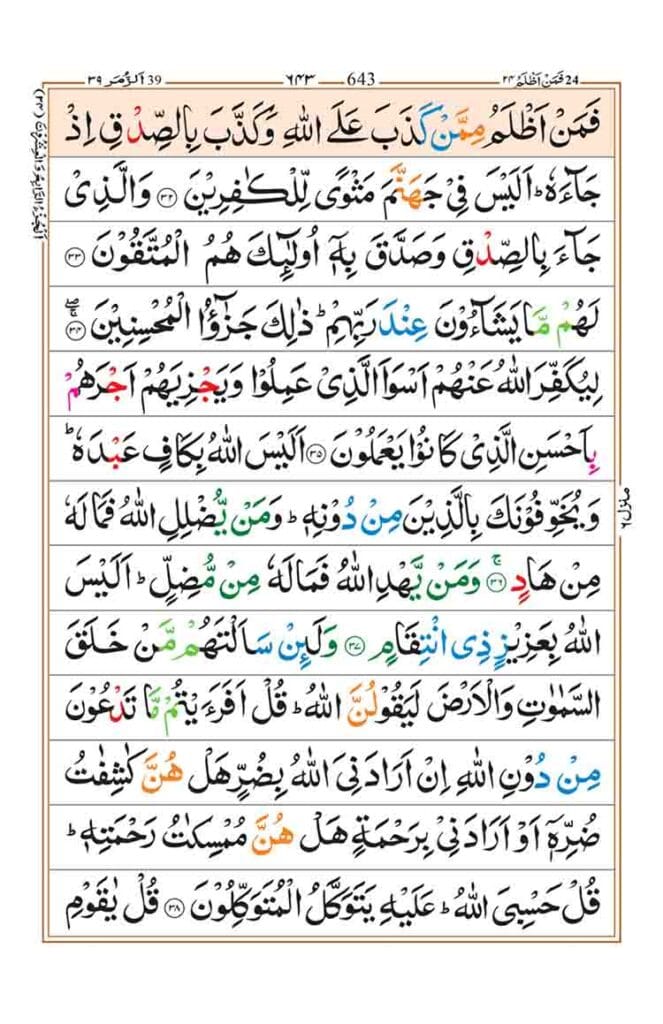 فمن اظلم ٢٤ 24 643 ٦٤٣ الزمر ٣٩ 39
فَمَنْ اَظْلَمُ مِمَّنْ كَذَبَ عَلَى اللّٰهِ وَكَذَّبَ بِالصِّدْقِ اِذْ
جَآءَهٗ ؕ اَلَیْسَ فِیْ جَهَنَّمَ مَثْوًی لِّلْكٰفِرِیْنَ ۝۳۲ وَالَّذِیْ
جَآءَ بِالصِّدْقِ وَصَدَّقَ بِهٖۤ اُولٰٓئِكَ هُمُ الْمُتَّقُوْنَ ۝۳۳
لَهُمْ مَّا یَشَآءُوْنَ عِنْدَ رَبِّهِمْ ؕ ذٰلِكَ جَزٰٓؤُا الْمُحْسِنِیْنَ ۝۳۴
لِیُكَفِّرَ اللّٰهُ عَنْهُمْ اَسْوَاَ الَّذِیْ عَمِلُوْا وَیَجْزِیَهُمْ اَجْرَهُمْ
بِاَحْسَنِ الَّذِیْ كَانُوْا یَعْمَلُوْنَ ۝۳۵ اَلَیْسَ اللّٰهُ بِكَافٍ عَبْدَهٗ ؕ
وَیُخَوِّفُوْنَكَ بِالَّذِیْنَ مِنْ دُوْنِهٖ ؕ وَمَنْ یُّضْلِلِ اللّٰهُ فَمَا لَهٗ
مِنْ هَادٍ ۝۳۶ۚ وَمَنْ یَّهْدِ اللّٰهُ فَمَا لَهٗ مِنْ مُّضِلٍّ ؕ اَلَیْسَ
اللّٰهُ بِعَزِیْزٍ ذِی انْتِقَامٍ ۝۳۷ وَلَىِٕنْ سَاَلْتَهُمْ مَّنْ خَلَقَ
السَّمٰوٰتِ وَالْاَرْضَ لَیَقُوْلُنَّ اللّٰهُ ؕ قُلْ اَفَرَءَیْتُمْ مَّا تَدْعُوْنَ
مِنْ دُوْنِ اللّٰهِ اِنْ اَرَادَنِیَ اللّٰهُ بِضُرٍّ هَلْ هُنَّ كٰشِفٰتُ
ضُرِّهٖۤ اَوْ اَرَادَنِیْ بِرَحْمَةٍ هَلْ هُنَّ مُمْسِكٰتُ رَحْمَتِهٖ ؕ
قُلْ حَسْبِیَ اللّٰهُ ؕ عَلَیْهِ یَتَوَكَّلُ الْمُتَوَكِّلُوْنَ ۝۳۸ قُلْ یٰقَوْمِ
منزل ٦
الجزء الرابع والعشرون (٢٤)